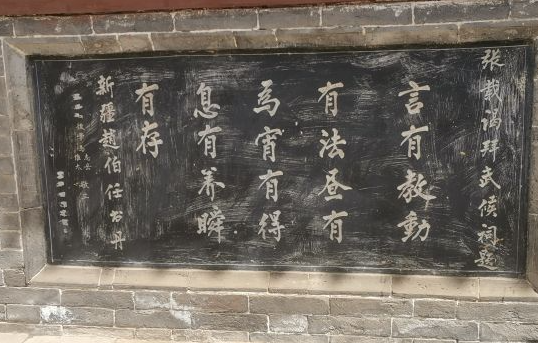 张载谒拜武侯祠题
言有教動
有法昼有
為宵有得
息有养瞬
有存
新疆趙伯任书丹